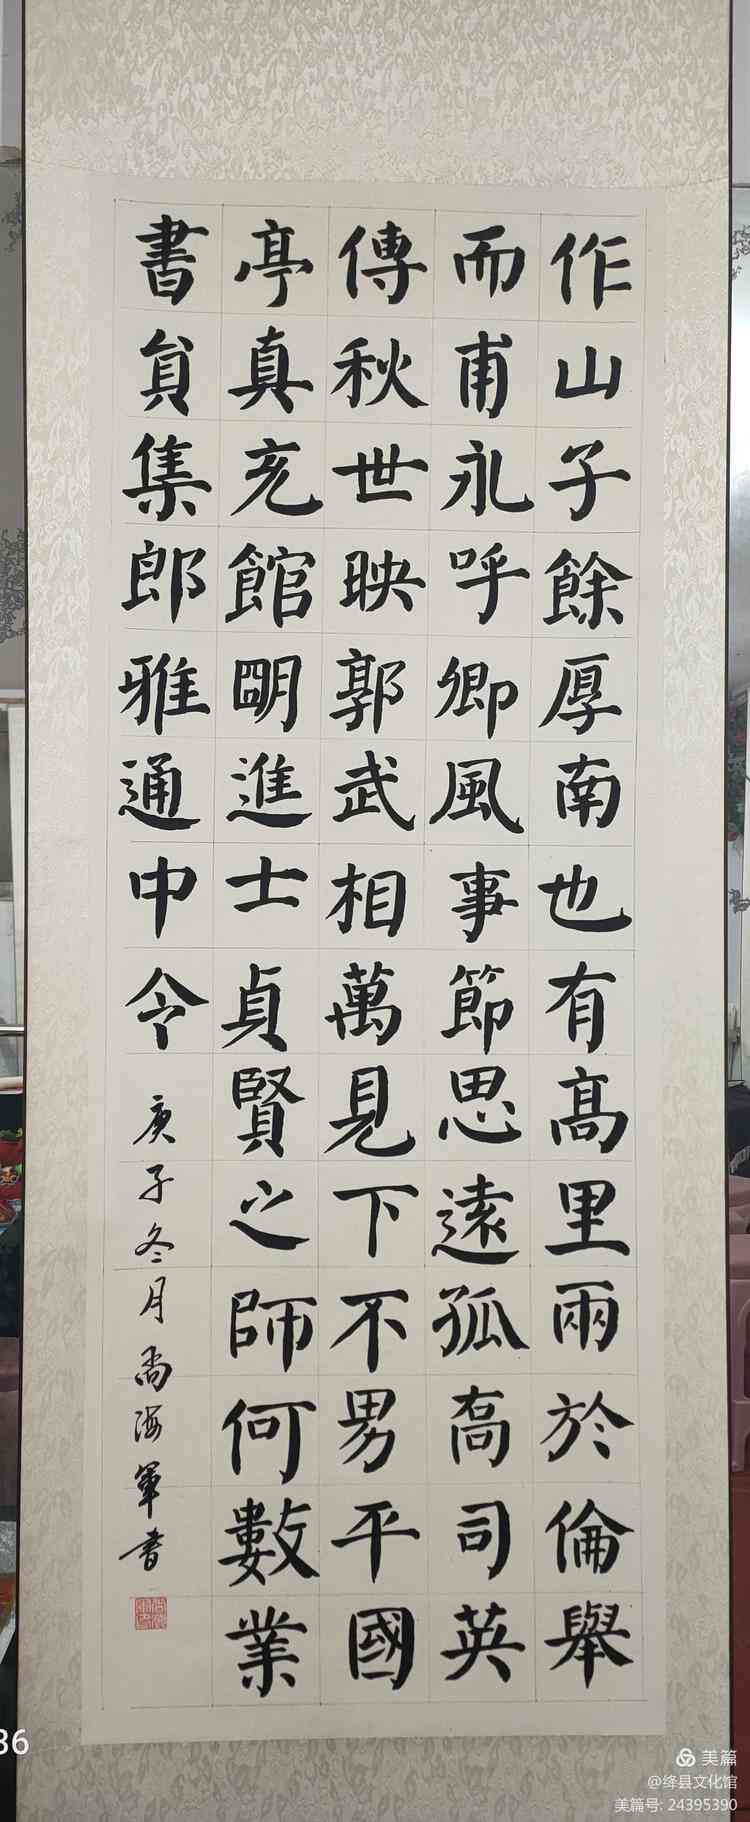 作山子餘厚南也有高里兩於倫舉
而甫永呼卿風事節思遠孤高司英
傳秋世映郭武相萬見下不男平國
亭真充館明進士貞賢之師何數業
書員集郎雅通中令
庚子冬月尚海軍書
36
美篇
@绛县文化馆
美篇号: 24395390